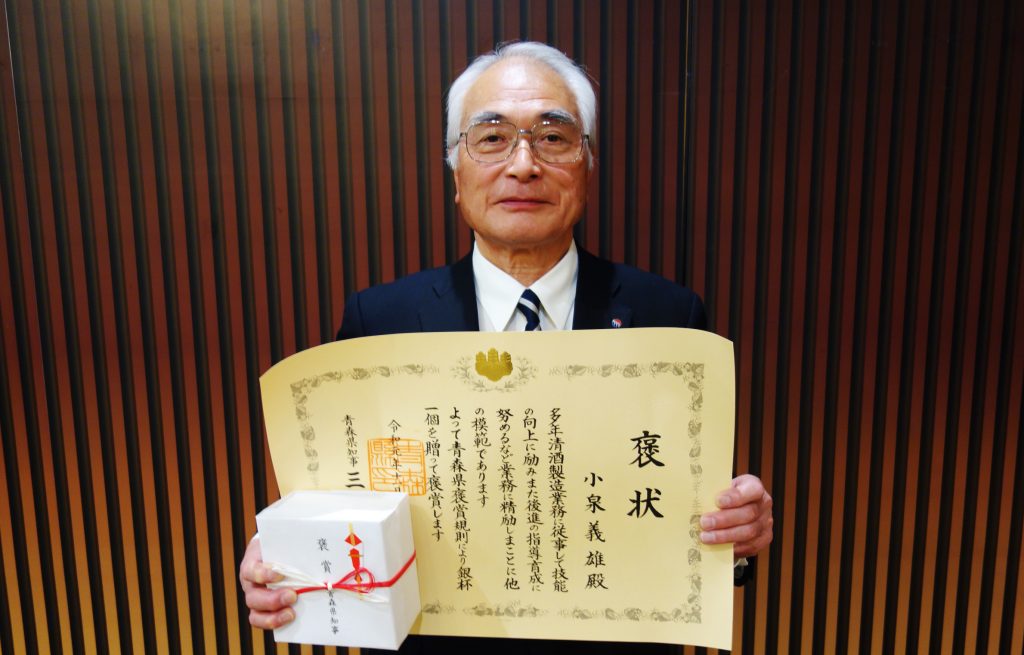 褒状
小泉義雄殿
多年清酒製造業務に従事して技能
の向上に励みまた後進の指導育成に
努めるなど業務に精励しまことに他
の模範であります
よって青森県褒賞規則により銀杯
一個を贈って褒賞します
令和元年十
青森県知事 三
褒賞
青森県知事